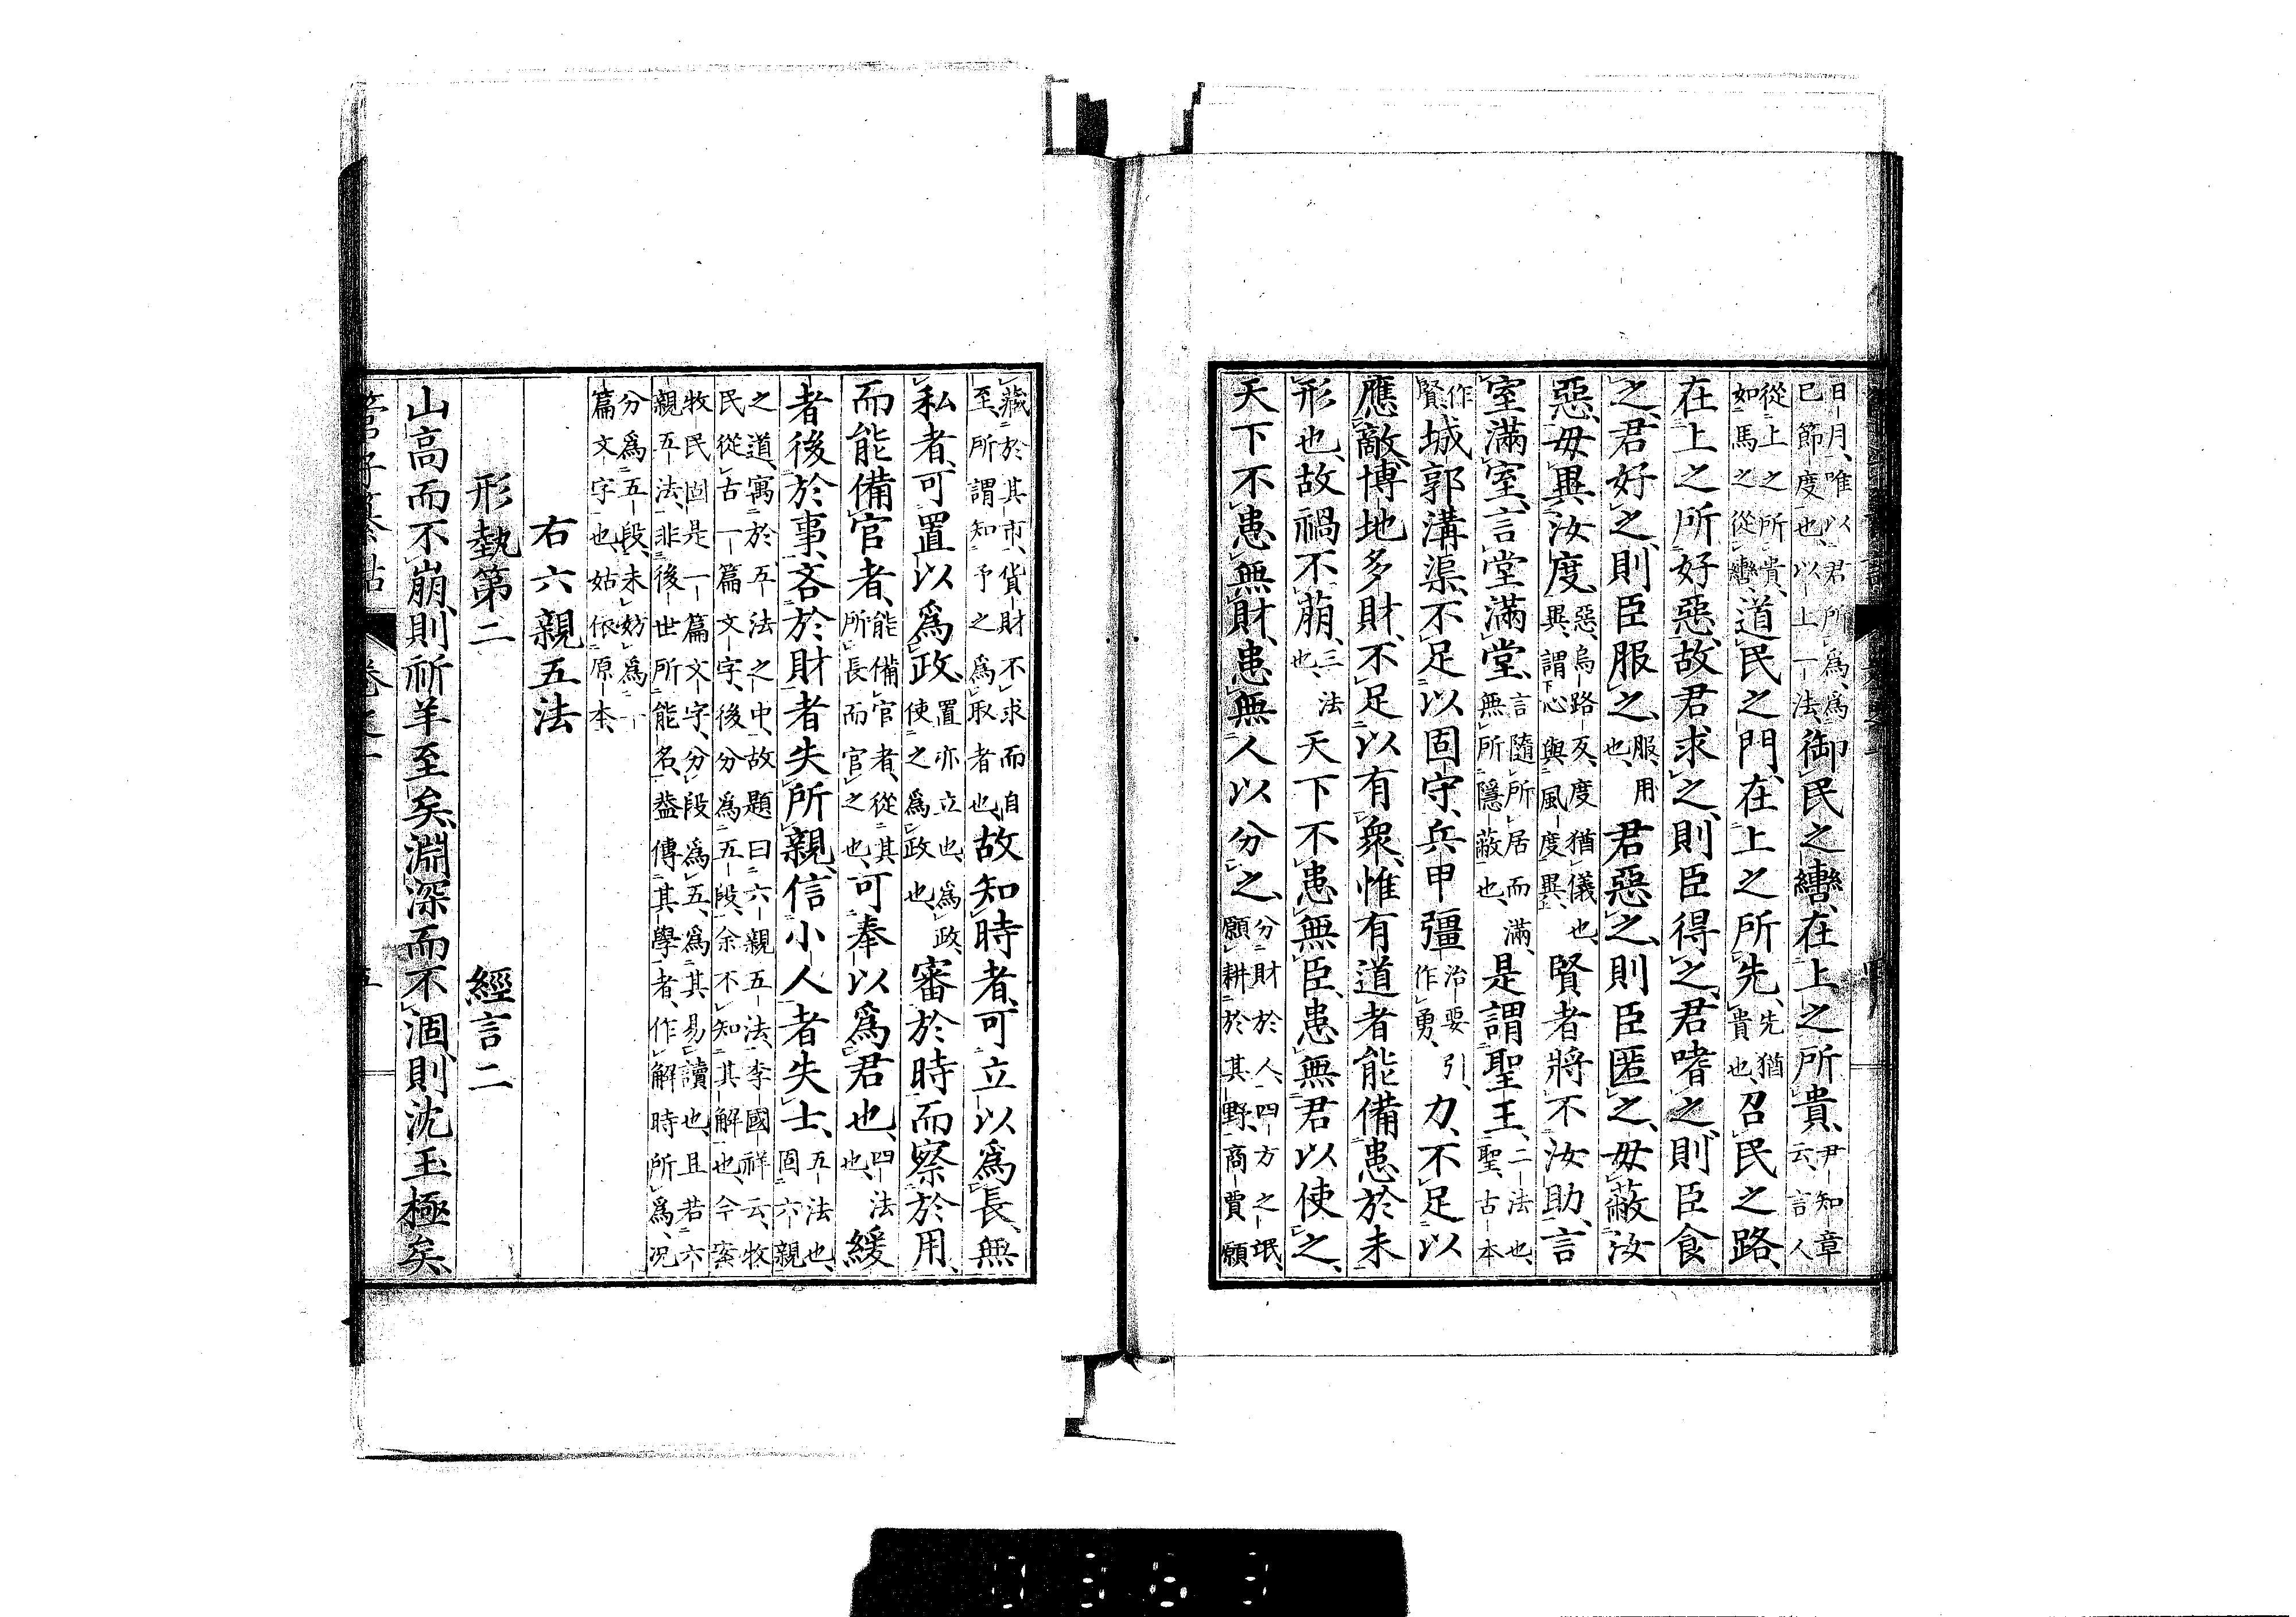 日月、唯以君所爲、爲
已節度也、以上一法、御民之轡、在上之所貴、尹知章云、言人
從上之所貴、如馬之從轡、道民之門、在上之所先、先猶貴也、召民之路、
在上之所好惡、故君求之、則臣得之、君嗜之、則臣食
之、君好之、則臣服之、服、用也、君惡之、則臣匿之、毋蔽汝
惡、毋異汝度、惡、烏路反、度猶儀也、異、謂下心與風度異上、賢者將不汝助、言
室滿室、言堂滿堂、言隨所居而滿、無所隱蔽也、是謂聖王、二法也、聖、古本
作賢、城郭溝渠、不足以固守、兵甲彊力、治要引、作勇、不足以
應敵、博地多財、不足以有衆、惟有道者能備患於未
形也、故禍不萠、三法也、天下不患無臣、患無君以使之、
天下不患無財、患無人以分之、分財於人、四方之氓、願耕於其野、商賈願
藏於其市、貨財不求而自至、所謂知予之爲取者也、故知時者、可立以爲長、無
私者、可置以爲政、置亦立也、爲政、使之爲政也、審於時而察於用、
而能備官者、能備官者、從其所長而官之也、可奉以爲君也、四法也、緩
者後於事、吝於財者失所親、信小人者失士、五法也、固六親
之道、寓於五法之中、故題曰六親五法、李國祥云、牧
民從古一篇文字、後分爲五段、余不知其解也、今案
牧民固是一篇文字、分段爲五、爲其易讀也、且若六
親五法、非後世所能名、蓋傳其學者、作解時所爲、況
分爲五段、未妨爲一
篇文字也、姑依原本、
右六親五法
形埶第二 經言二
山高而不崩、則祈羊至矣、淵深而不涸、則沈玉極矣、
管子纂詁 卷之一